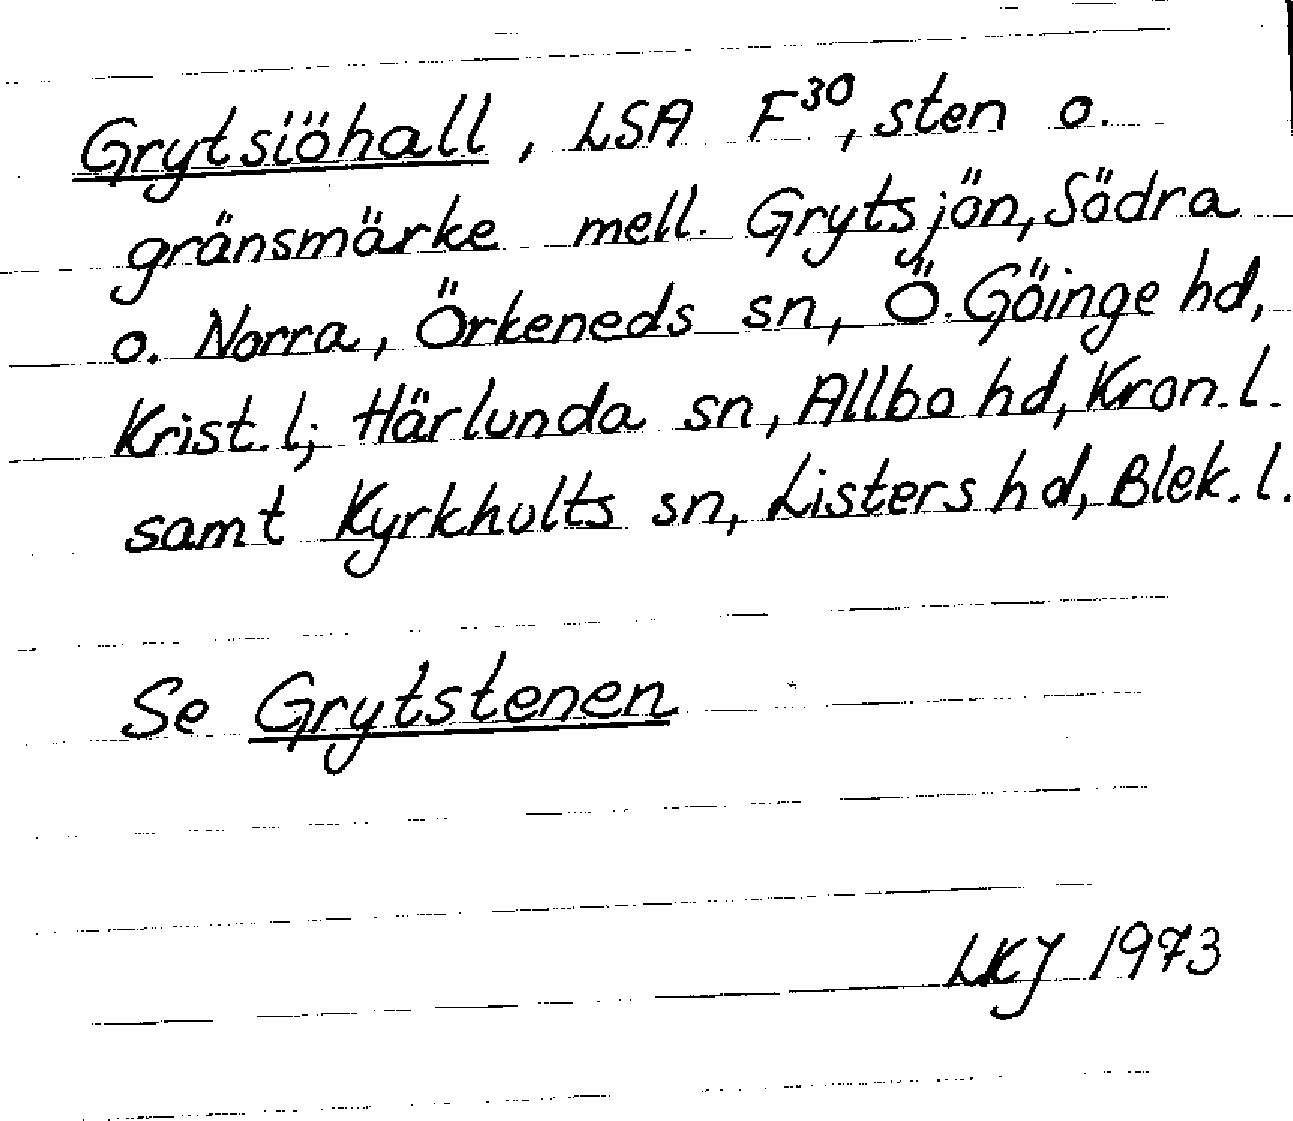 Grytsiöhall, LSA F³⁰, sten o.
gränsmärke mell. Grytsjön, Södra
o. Norra, Örkeneds sn, Ö. Göinge hd,
Krist. l; Härlunda sn, Allbo hd, Kron. l.
samt Kyrkhults sn, Listers hd, Blek. l.
Se Grytstenen
LKJ 1973